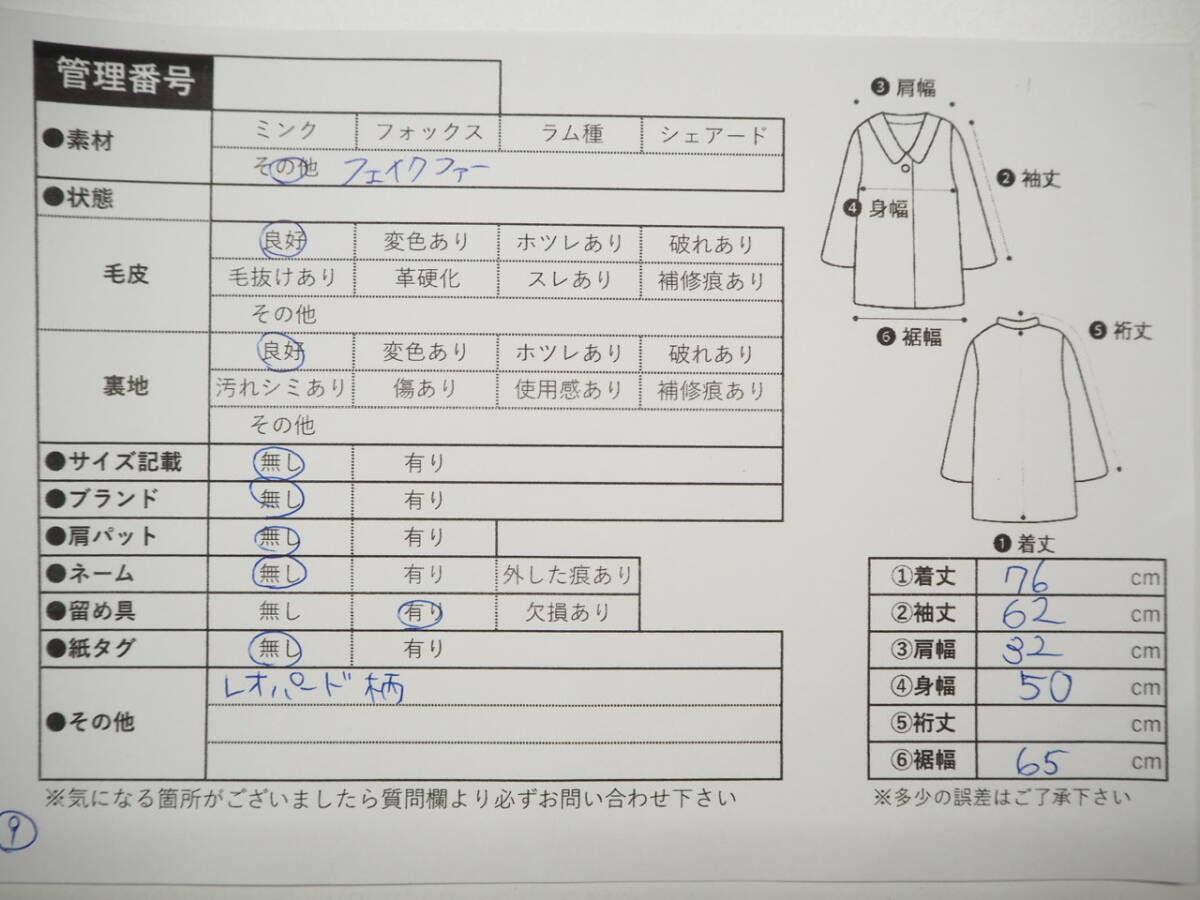 管理番号
●素材 ミンク フォックス ラム種 シェアード
その他 フェイクファー
●状態
毛皮 良好 変色あり ホツレあり 破れあり
毛抜けあり 革硬化 スレあり 補修痕あり
その他
裏地 良好 変色あり ホツレあり 破れあり
汚れシミあり 傷あり 使用感あり 補修痕あり
その他
●サイズ記載 無し 有り
●ブランド 無し 有り
●肩パット 無し 有り
●ネーム 無し 有り 外した痕あり
●留め具 無し 有り 欠損あり
●紙タグ 無し 有り
●その他 レオパード柄
※気になる箇所がございましたら質問欄より必ずお問い合わせ下さい
9
❸ 肩幅
❷ 袖丈
❹ 身幅
❻ 裾幅
❺ 裄丈
❶ 着丈
①着丈 76 cm
②袖丈 62 cm
③肩幅 32 cm
④身幅 50 cm
⑤裄丈 cm
⑥裾幅 65 cm
※多少の誤差はご了承下さい